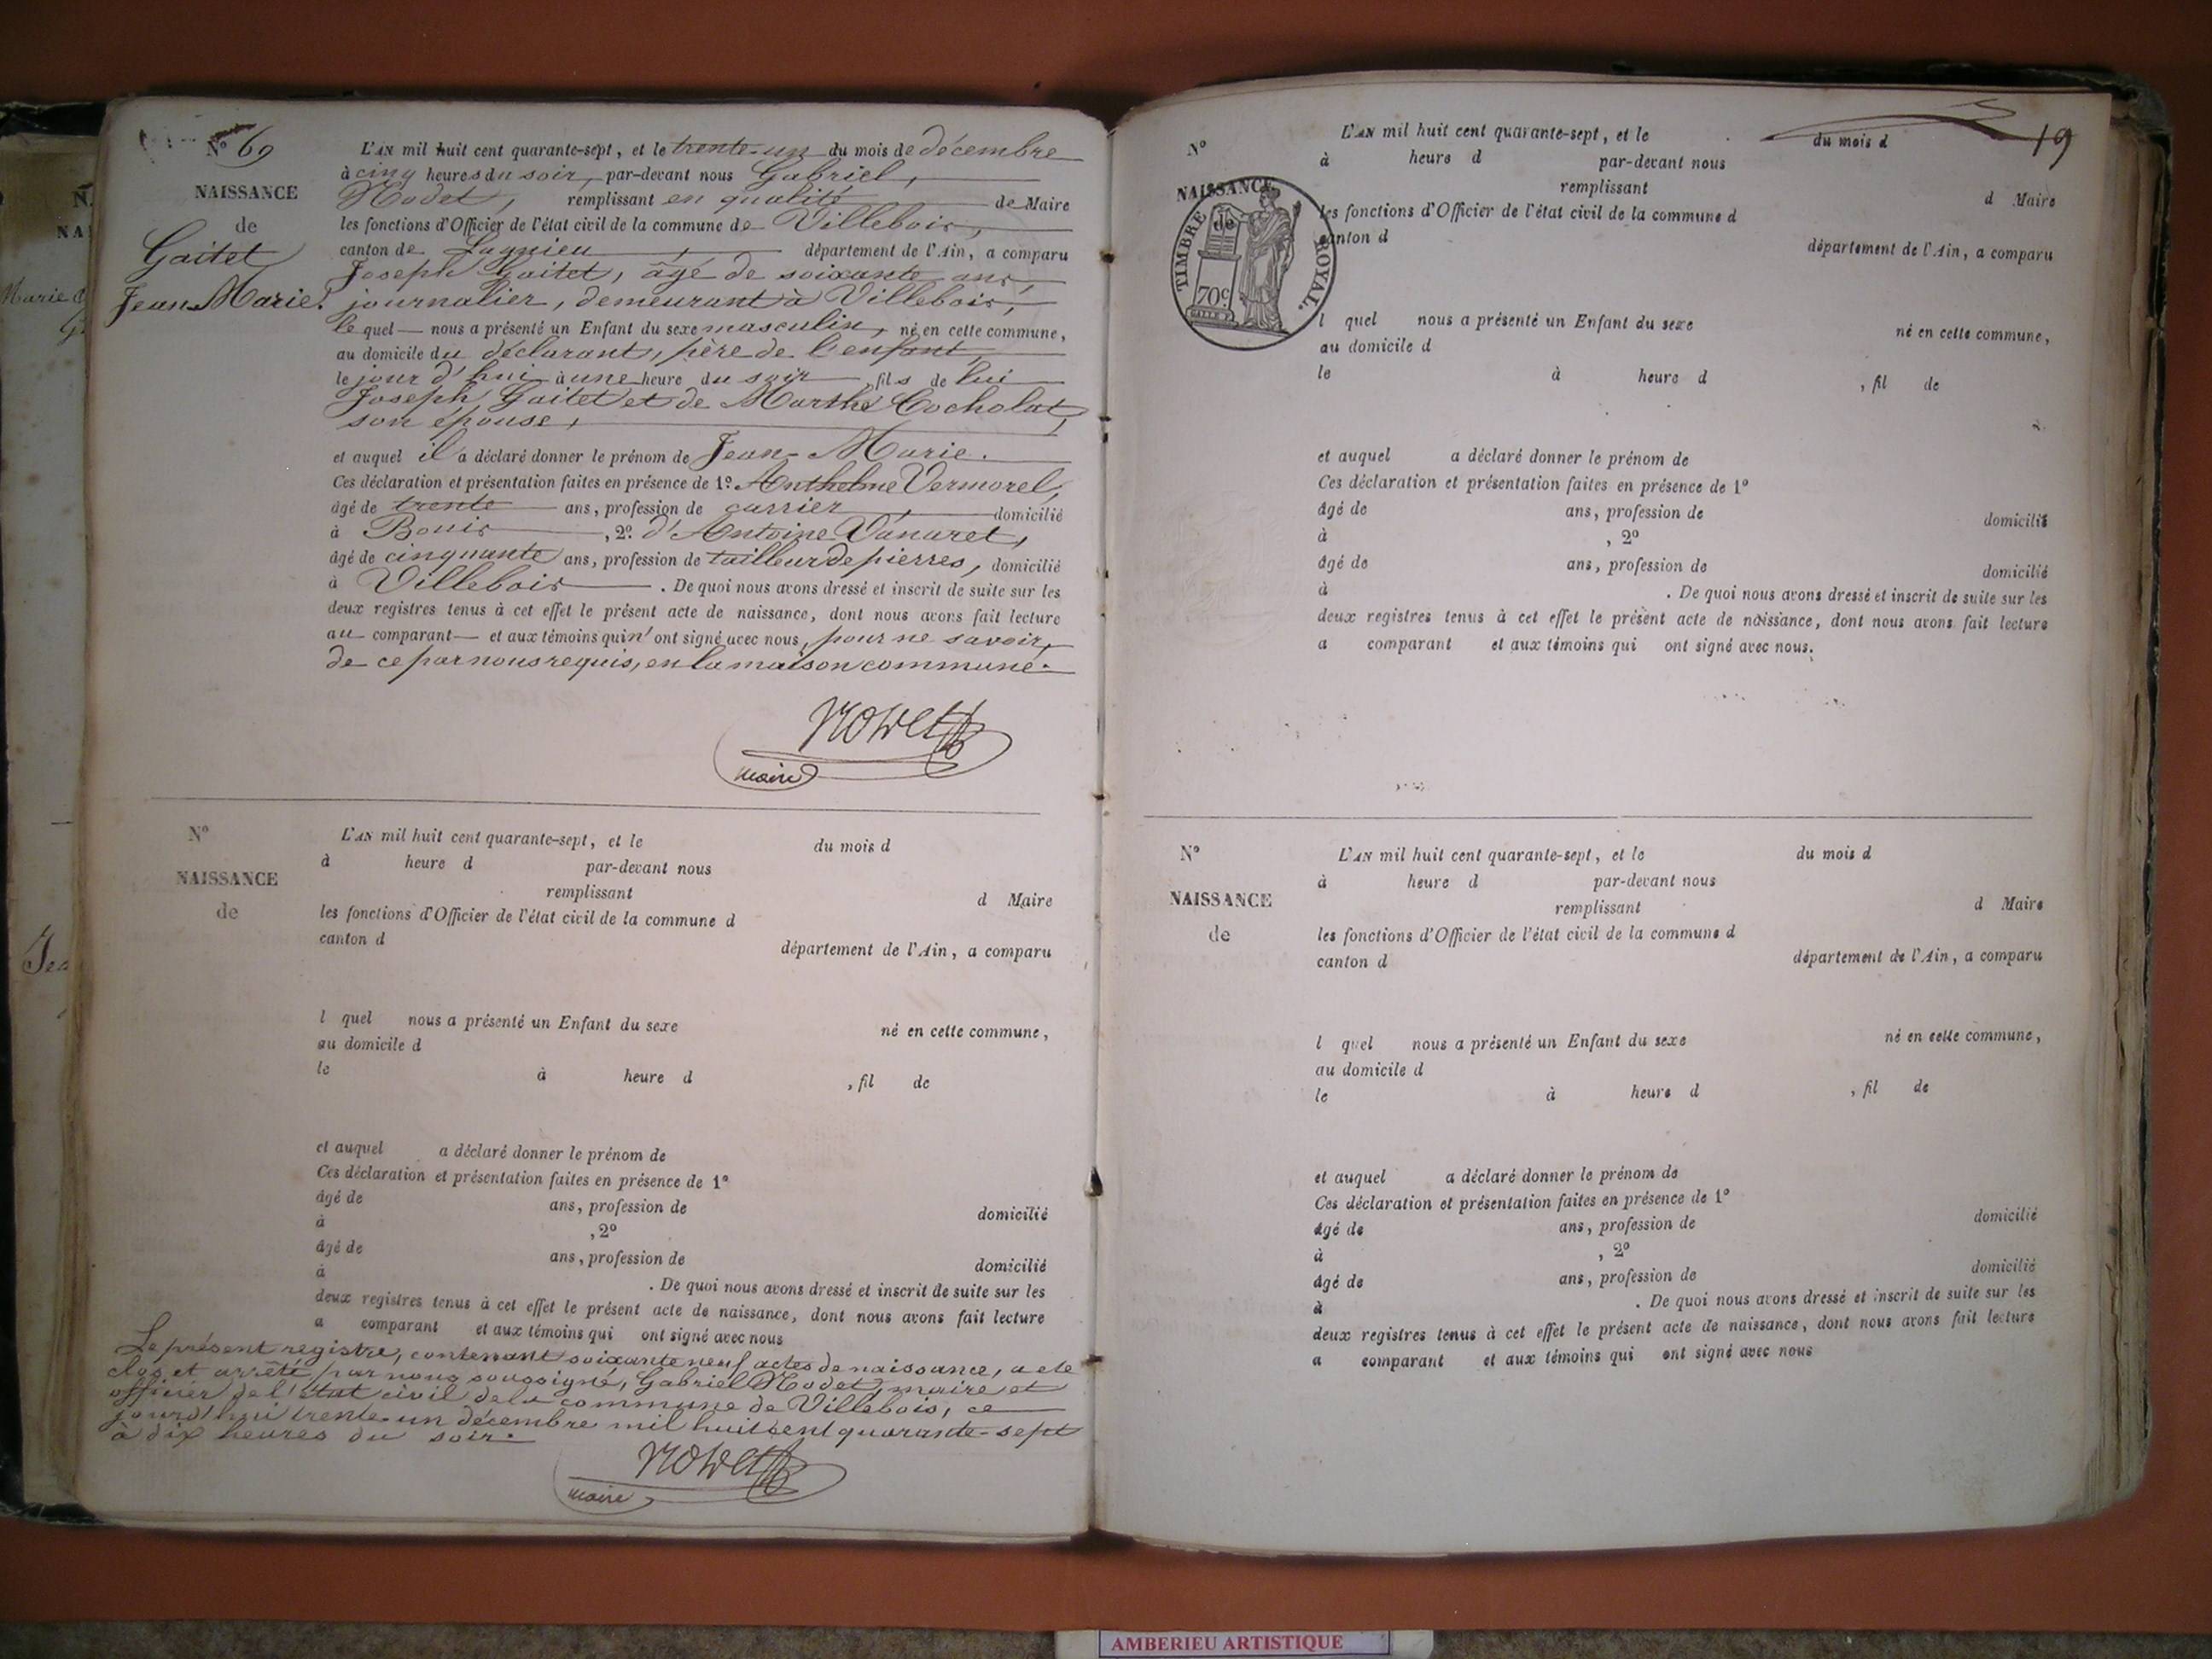 Nº 69
NAISSANCE
de
Gaitet
Jean-Marie.
L'AN mil huit cent quarante-sept, et le trente-un du mois de décembre
à cinq heures du soir, par-devant nous Gabriel,
Nodet, remplissant en qualité de Maire
les fonctions d'Officier de l'état civil de la commune de Villebois,
canton de Lagnieu, département de l'Ain, a comparu
Joseph Gaitet, âgé de soixante ans,
journalier, demeurant à Villebois,
le quel nous a présenté un Enfant du sexe masculin, né en cette commune,
au domicile du déclarant, père de l'enfant,
le jour d'hui à une heure du soir, fils de lui
Joseph Gaitet et de Marthe Cocholat,
son épouse,
et auquel il a déclaré donner le prénom de Jean-Marie.
Ces déclaration et présentation faites en présence de 1º Anthelme Vermorel,
âgé de trente ans, profession de carrier, domicilié
à Bouis, 2º d'Antoine Vanaret,
âgé de cinquante ans, profession de tailleur de pierres, domicilié
à Villebois. De quoi nous avons dressé et inscrit de suite sur les
deux registres tenus à cet effet le présent acte de naissance, dont nous avons fait lecture
au comparant et aux témoins qui n'ont signé avec nous, pour ne savoir,
de ce par nous requis, en la maison commune.
Nodet
maire
Nº
NAISSANCE
de
L'AN mil huit cent quarante-sept, et le du mois d
à heure d par-devant nous
remplissant d Maire
les fonctions d'Officier de l'état civil de la commune d
canton d département de l'Ain, a comparu
l quel nous a présenté un Enfant du sexe né en cette commune,
au domicile d
le à heure d , fil de
et auquel a déclaré donner le prénom de
Ces déclaration et présentation faites en présence de 1º
âgé de ans, profession de domicilié
à , 2º
âgé de ans, profession de domicilié
à . De quoi nous avons dressé et inscrit de suite sur les
deux registres tenus à cet effet le présent acte de naissance, dont nous avons fait lecture
a comparant et aux témoins qui ont signé avec nous
Le présent registre, contenant soixante neuf actes de naissance, a été
clos et arrêté par nous soussigné, Gabriel Nodet, maire et
officier de l'état civil de la commune de Villebois, ce
jourd'hui trente-un décembre mil huit cent quarante-sept
à dix heures du soir.
Nodet
maire
19
Nº
NAISSANCE
de
TIMBRE ROYAL.
70c
L'AN mil huit cent quarante-sept, et le du mois d
à heure d par-devant nous
remplissant d Maire
les fonctions d'Officier de l'état civil de la commune d
canton d département de l'Ain, a comparu
l quel nous a présenté un Enfant du sexe né en cette commune,
au domicile d
le à heure d , fil de
et auquel a déclaré donner le prénom de
Ces déclaration et présentation faites en présence de 1º
âgé de ans, profession de domicilié
à , 2º
âgé de ans, profession de domicilié
à . De quoi nous avons dressé et inscrit de suite sur les
deux registres tenus à cet effet le présent acte de naissance, dont nous avons fait lecture
a comparant et aux témoins qui ont signé avec nous.
Nº
NAISSANCE
de
L'AN mil huit cent quarante-sept, et le du mois d
à heure d par-devant nous
remplissant d Maire
les fonctions d'Officier de l'état civil de la commune d
canton d département de l'Ain, a comparu
l quel nous a présenté un Enfant du sexe né en cette commune,
au domicile d
le à heure d , fil de
et auquel a déclaré donner le prénom de
Ces déclaration et présentation faites en présence de 1º
âgé de ans, profession de domicilié
à , 2º
âgé de ans, profession de domicilié
à . De quoi nous avons dressé et inscrit de suite sur les
deux registres tenus à cet effet le présent acte de naissance, dont nous avons fait lecture
a comparant et aux témoins qui ont signé avec nous
AMBERIEU ARTISTIQUE